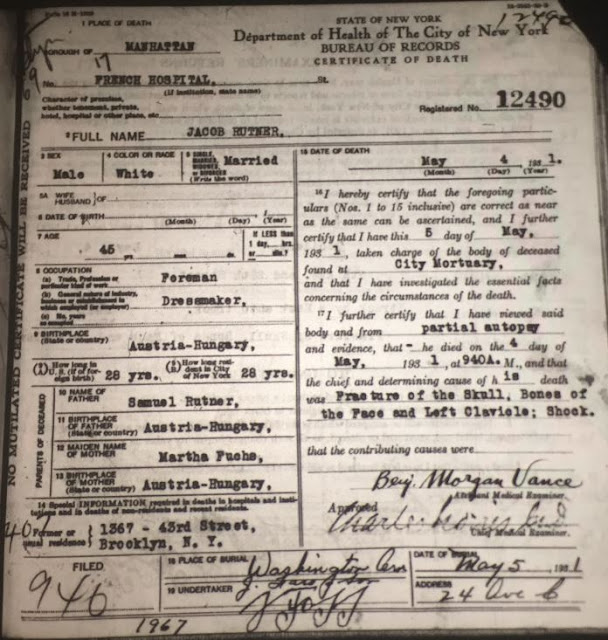 1 PLACE OF DEATH
STATE OF NEW YORK
Department of Health of The City of New York
BUREAU OF RECORDS
CERTIFICATE OF DEATH
BOROUGH OF MANHATTAN
No. FRENCH HOSPITAL, St.
(If institution, state name)
Character of premises,
whether tenement, private,
hotel, hospital or other place, etc.
Registered No. 12490
2 FULL NAME JACOB RUTNER,
3 SEX
Male
4 COLOR OR RACE
White
5 SINGLE,
MARRIED,
WIDOWED,
or DIVORCED
(Write the word)
Married
5A WIFE
HUSBAND } OF
6 DATE OF BIRTH
(Month) (Day) (Year)
7 AGE
45 yrs.
If LESS than
1 day, hrs.
or min.?
8 OCCUPATION
(a) Trade, Profession or
particular kind of work Foreman
(b) General nature of industry,
business or establishment in
which employed (or employer) Dressmaker,
9 BIRTHPLACE
(State or country) Austria-Hungary,
(A) How long in
U. S. (if of for-
eign birth) 28 yrs.
(B) How long resi-
dent in City
of New York 28 yrs.
PARENTS OF DECEASED
10 NAME OF
FATHER Samuel Rutner,
11 BIRTHPLACE
OF FATHER
(State or country) Austria-Hungary,
12 MAIDEN NAME
OF MOTHER Martha Fuchs,
13 BIRTHPLACE
OF MOTHER
(State or country) Austria-Hungary,
14 Special INFORMATION required in deaths in hospitals and insti-
tutions and in deaths of non-residents and recent residents.
Former or
usual residence } 1367 - 43rd Street,
Brooklyn, N. Y.
15 DATE OF DEATH
May 4, 1931.
(Month) (Day) (Year)
16 I hereby certify that the foregoing partic-
ulars (Nos. 1 to 15 inclusive) are correct as near
as the same can be ascertained, and I further
certify that I have this 5 day of May,
1931, taken charge of the body of deceased
found at City Mortuary,
and that I have investigated the essential facts
concerning the circumstances of the death.
17 I further certify that I have viewed said
body and from partial autopsy
and evidence, that - he died on the 4 day of
May, 1931, at 940A. M., and that
the chief and determining cause of h is death
was Fracture of the Skull, Bones of
the Face and Left Clavicle; Shock.
that the contributing causes were
Benj. Morgan Vance
Assistant Medical Examiner.
Approved
Charles Norris
Chief Medical Examiner.
FILED
946
18 PLACE OF BURIAL
Washington Cem
DATE OF BURIAL
May 5 1931
19 UNDERTAKER
ADDRESS
24 Ave
1967
NO MUTILATED CERTIFICATE WILL BE RECEIVED